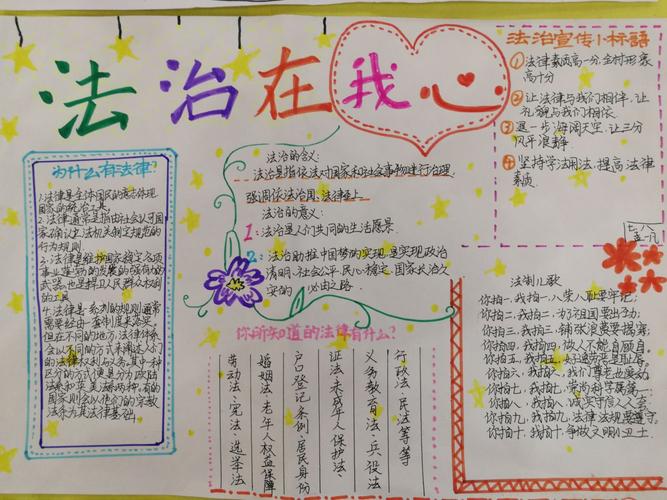 法治在我心
法治宣传小标语
①法律素质高一分,全村形象
高十分
②让法律与我们相伴,让
礼貌与我们相依
③退一步海阔天空,让三分
风平浪静
④坚持学法用法,提高法律
素质
七、八
孟一凡
为什么有法律?
1.法律是全体国民的意志体现
国家的统治工具
2.法律通常是指由社会认可国
家确认立法机关制定规范的
行为规则
3.法律是维护国家稳定、各项
事业蓬勃的发展的强有力的
武器,也是捍卫人民群众权利
的工具
4.法律是系列的规则,通常
需要经由一套制度来落实,
但在不同的地方,法律体系
会以不同的方式来阐述人们
的法律权利与义务,其中一种
区分的方式便是分为欧陆
法系和英美法系两种,有的
国家则会以他们的宗教
法条为其法律基础
法治的含义:
法治是指依法对国家和社会事物进行治理,
强调依法治国、法律至上
法治的意义:
1:法治是人们共同的生活愿景.
2:法治助推中国梦的实现,是实现政治
清明、社会公平、民心稳定、国家长治久
安的必由之路.
你所知道的法律有什么?
行政法、民法等等
义务教育法、兵役法
证法、未成年人保护法、
户口登记条例、居民身份
婚姻法、老年人权益保障
劳动法、宪法、选举法
法制儿歌
你拍一,我拍一,八荣八耻要牢记;
你拍二,我拍二,为了祖国要出力;
你拍三,我拍三,铺张浪费要提穿;
你拍四,我拍四,做人不能自顾自;
你拍五,我拍五,好逸恶劳是耻辱;
你拍六,我拍六,我们尊老也爱幼;
你拍七,我拍七,崇尚科学属第一;
你拍八,我拍八,诚实守信人人夸;
你拍九,我拍九,法律法规要遵守;
你拍十,我拍十,争做文明小卫士.